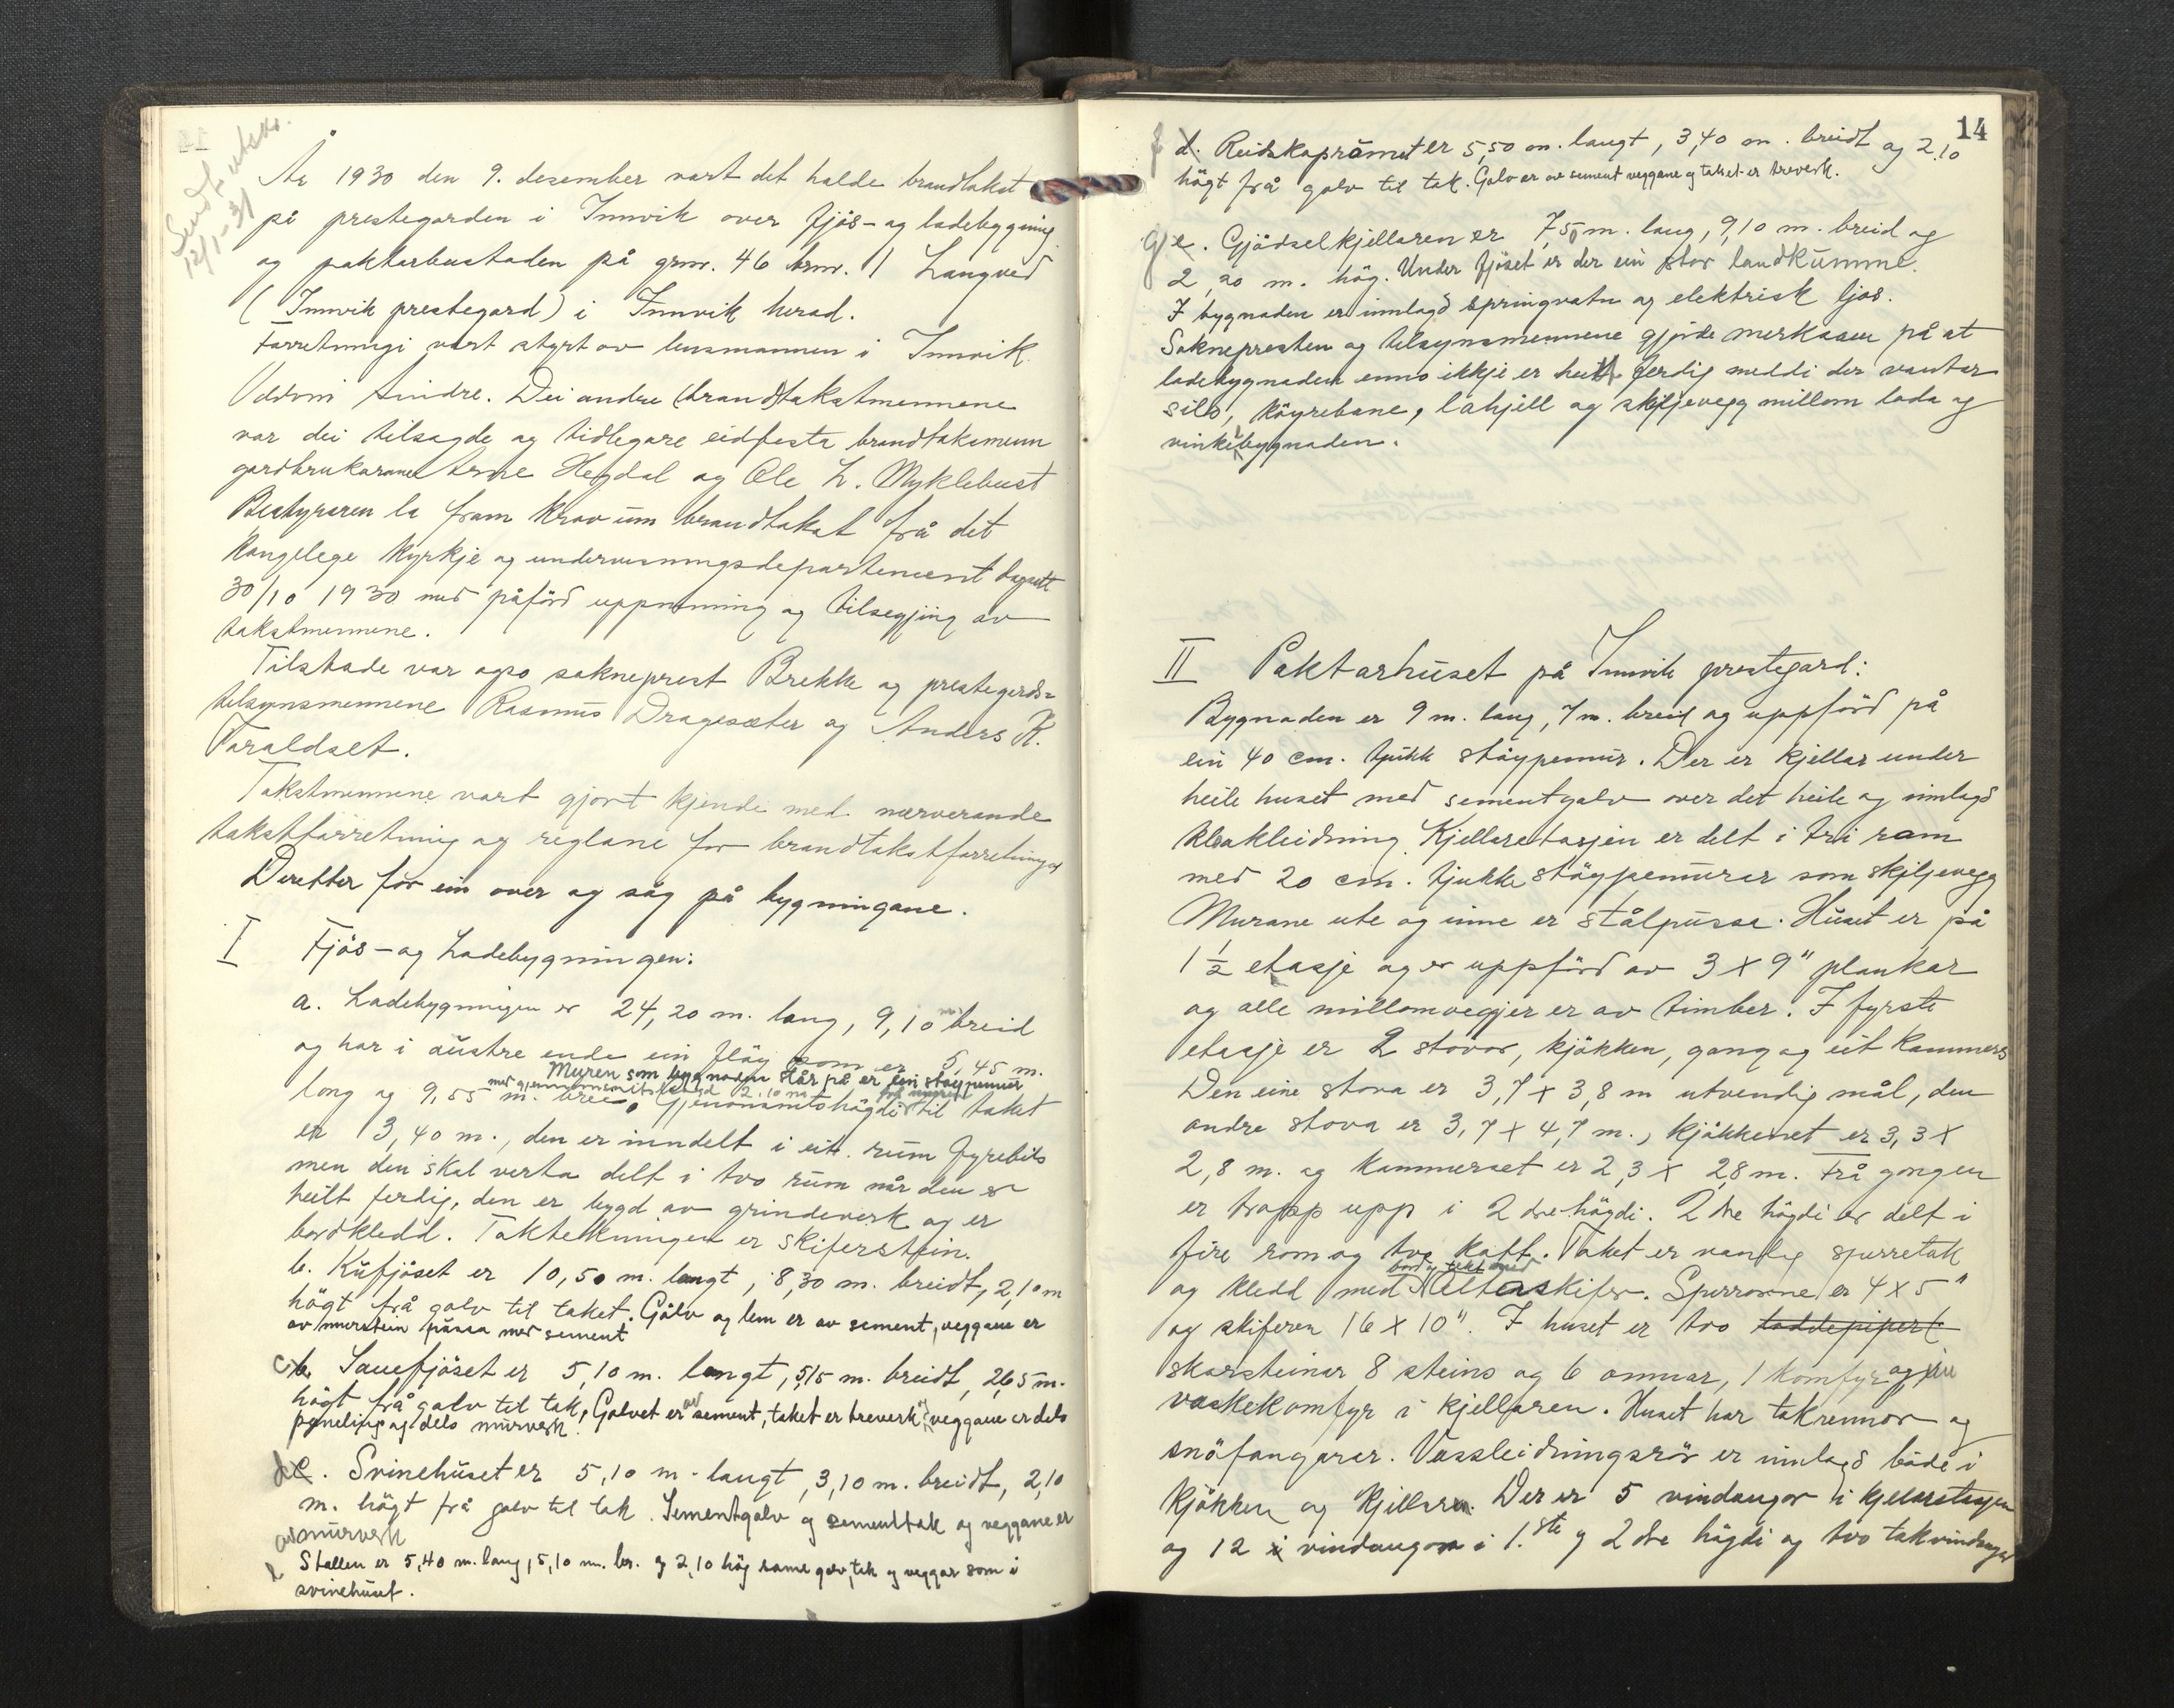 Sendt utskr.
12/1-31
År 1930 den 9. desember vart det halde brandtakst
på prestegarden i Innvik over fjös- og ladebygging
og paktarbustaden på grnr. 46 brnr. 1 Langved
(Innvik prestegard) i Innvik herad.
Forretningi vart styrt av lensmannen i Innvik
Oddvin Sindre. Dei andre (brand)takstmennene
var dei tilsagde og tidlegare eidfesta brandtaksmenn
gardbrukarane Arne Hegdal og Ole L. Myklebust
Bestyraren la fram krav um brandtakst frå det
Kongelege Kyrkje og undervisningsdepartement dagsett
30/10 1930 med påförd uppnemning og tilsegjing av
takstmennene.
Tilstade var ogso sokneprest Brekke og prestegards-
tilsynsmennene Rasmus Dragesæter og Anders R.
Taraldset.
Takstmennene vart gjort kjende med nærverande
takstforretning og reglane for brandtakstforretningar
Deretter for ein over og såg på bygningane.
I Fjös- og Ladebygningen:
a. Ladebygningen er 24,20 m. lang, 9,10 m breid
og har i austre ende ein flöy som er 5,45 m.
Muren som bygnaden står på er ein stöypemur
med gjennomsnitshögd 2,10 m
long og 9,55 m. brei. Gjenomsnitshögdi til taket
er 3,40 m., den er inndelt i eit rum fyrebils
men den skal verta delt i tvo rum når den er
heilt ferdig, den er bygd av grindverk og er
bordkledd. Taktekningen er skiferstein.
b. Kufjöset er 10,50 m. langt, 8,30 m. breidt, 2,10 m
högt frå golv til taket. Gólv og lem er av sement, veggane er
av murstein pussa med sement
c. b. Sauefjöset er 5,10 m. langt, 5,15 m. breidt, 2,65 m.
högt frå golv til tak. Golvet er av sement, taket er treverk og veggane er dels
paneling og dels murverk.
d c. Svinehuset er 5,10 m. langt, 3,10 m. breidt, 2,10
m. högt frå golv til tak. Sementgolv og sementtak og veggane er
av murverk
e Stallen er 5,40 m. lang, 5,10 m. br. og 2,10 hög same golv, tak og veggar som i
svinehuset.
14
f d. Reidskaprámet er 5,50 m. langt, 3,40 m. breidt og 2.10
högt frå golv til tak. Golv er av sement veggane og taket er treverk.
g e. Gjödselkjellaren er 7,50 m. lang, 9,10 m. breid og
2,20 m. hög. Under fjöset er der ein stor landkumme.
I bygnaden er innlagd springvatn og elektrisk ljos.
Soknepresten og tilsynsmennene gjorde merksam på at
ladebygnaden enno ikkje er heilt ferdig meddi der vantar
silo, köyrebane, låhjell og skiljevegg millom loda og
vinkelbygnaden.
II Paktarhuset på Innvik prestegard:
Bygnaden er 9 m. lang, 7 m. breid og uppförd på
ein 40 cm. tjukk stöypemur. Der er kjellar under
heile huset med sementgolv over det heile og innlagd
kloakleidning. Kjellaretasjen er delt i tri rom
med 20 cm. tjukke stöypemurar som skiljevegg
Murane ute og inne er stålpussa. Huset er på
1 1/2 etasje og er uppförd av 3 x 9" plankar
og alle millomvegjer er av timber. I fyrste
etasje er 2 stovor, kjökken, gang og eit kammers
Den eine stova er 3,7 x 3,8 m utvendig mål, den
andre stova er 3,7 x 4,7 m., kjökkenet er 3,3 x
2,8 m. og kammerset er 2,3 x 2,8 m. Frå gongen
er trapp upp i 2dre högdi. 2dre högdi er delt i
fire rom og tvo kott. Taket er vanleg sperretak
bord og tekt med
og kledd med Altaskifer. Sperrorne er 4 x 5"
og skiferen 16 x 10". I huset er tvo toddepipert
skorsteinar 8 steins og 6 omnar, 1 komfyr og ein
vaskekomfyr i kjellaren. Huset har takrennor og
snöfangarar. Vassleidningsrör er innlagd både i
kjökken og kjellaren. Der er 5 vindaugor i kjellaretasjen
og 12 vindaugor i 1.ste og 2dre högdi og tvo takvindaugar